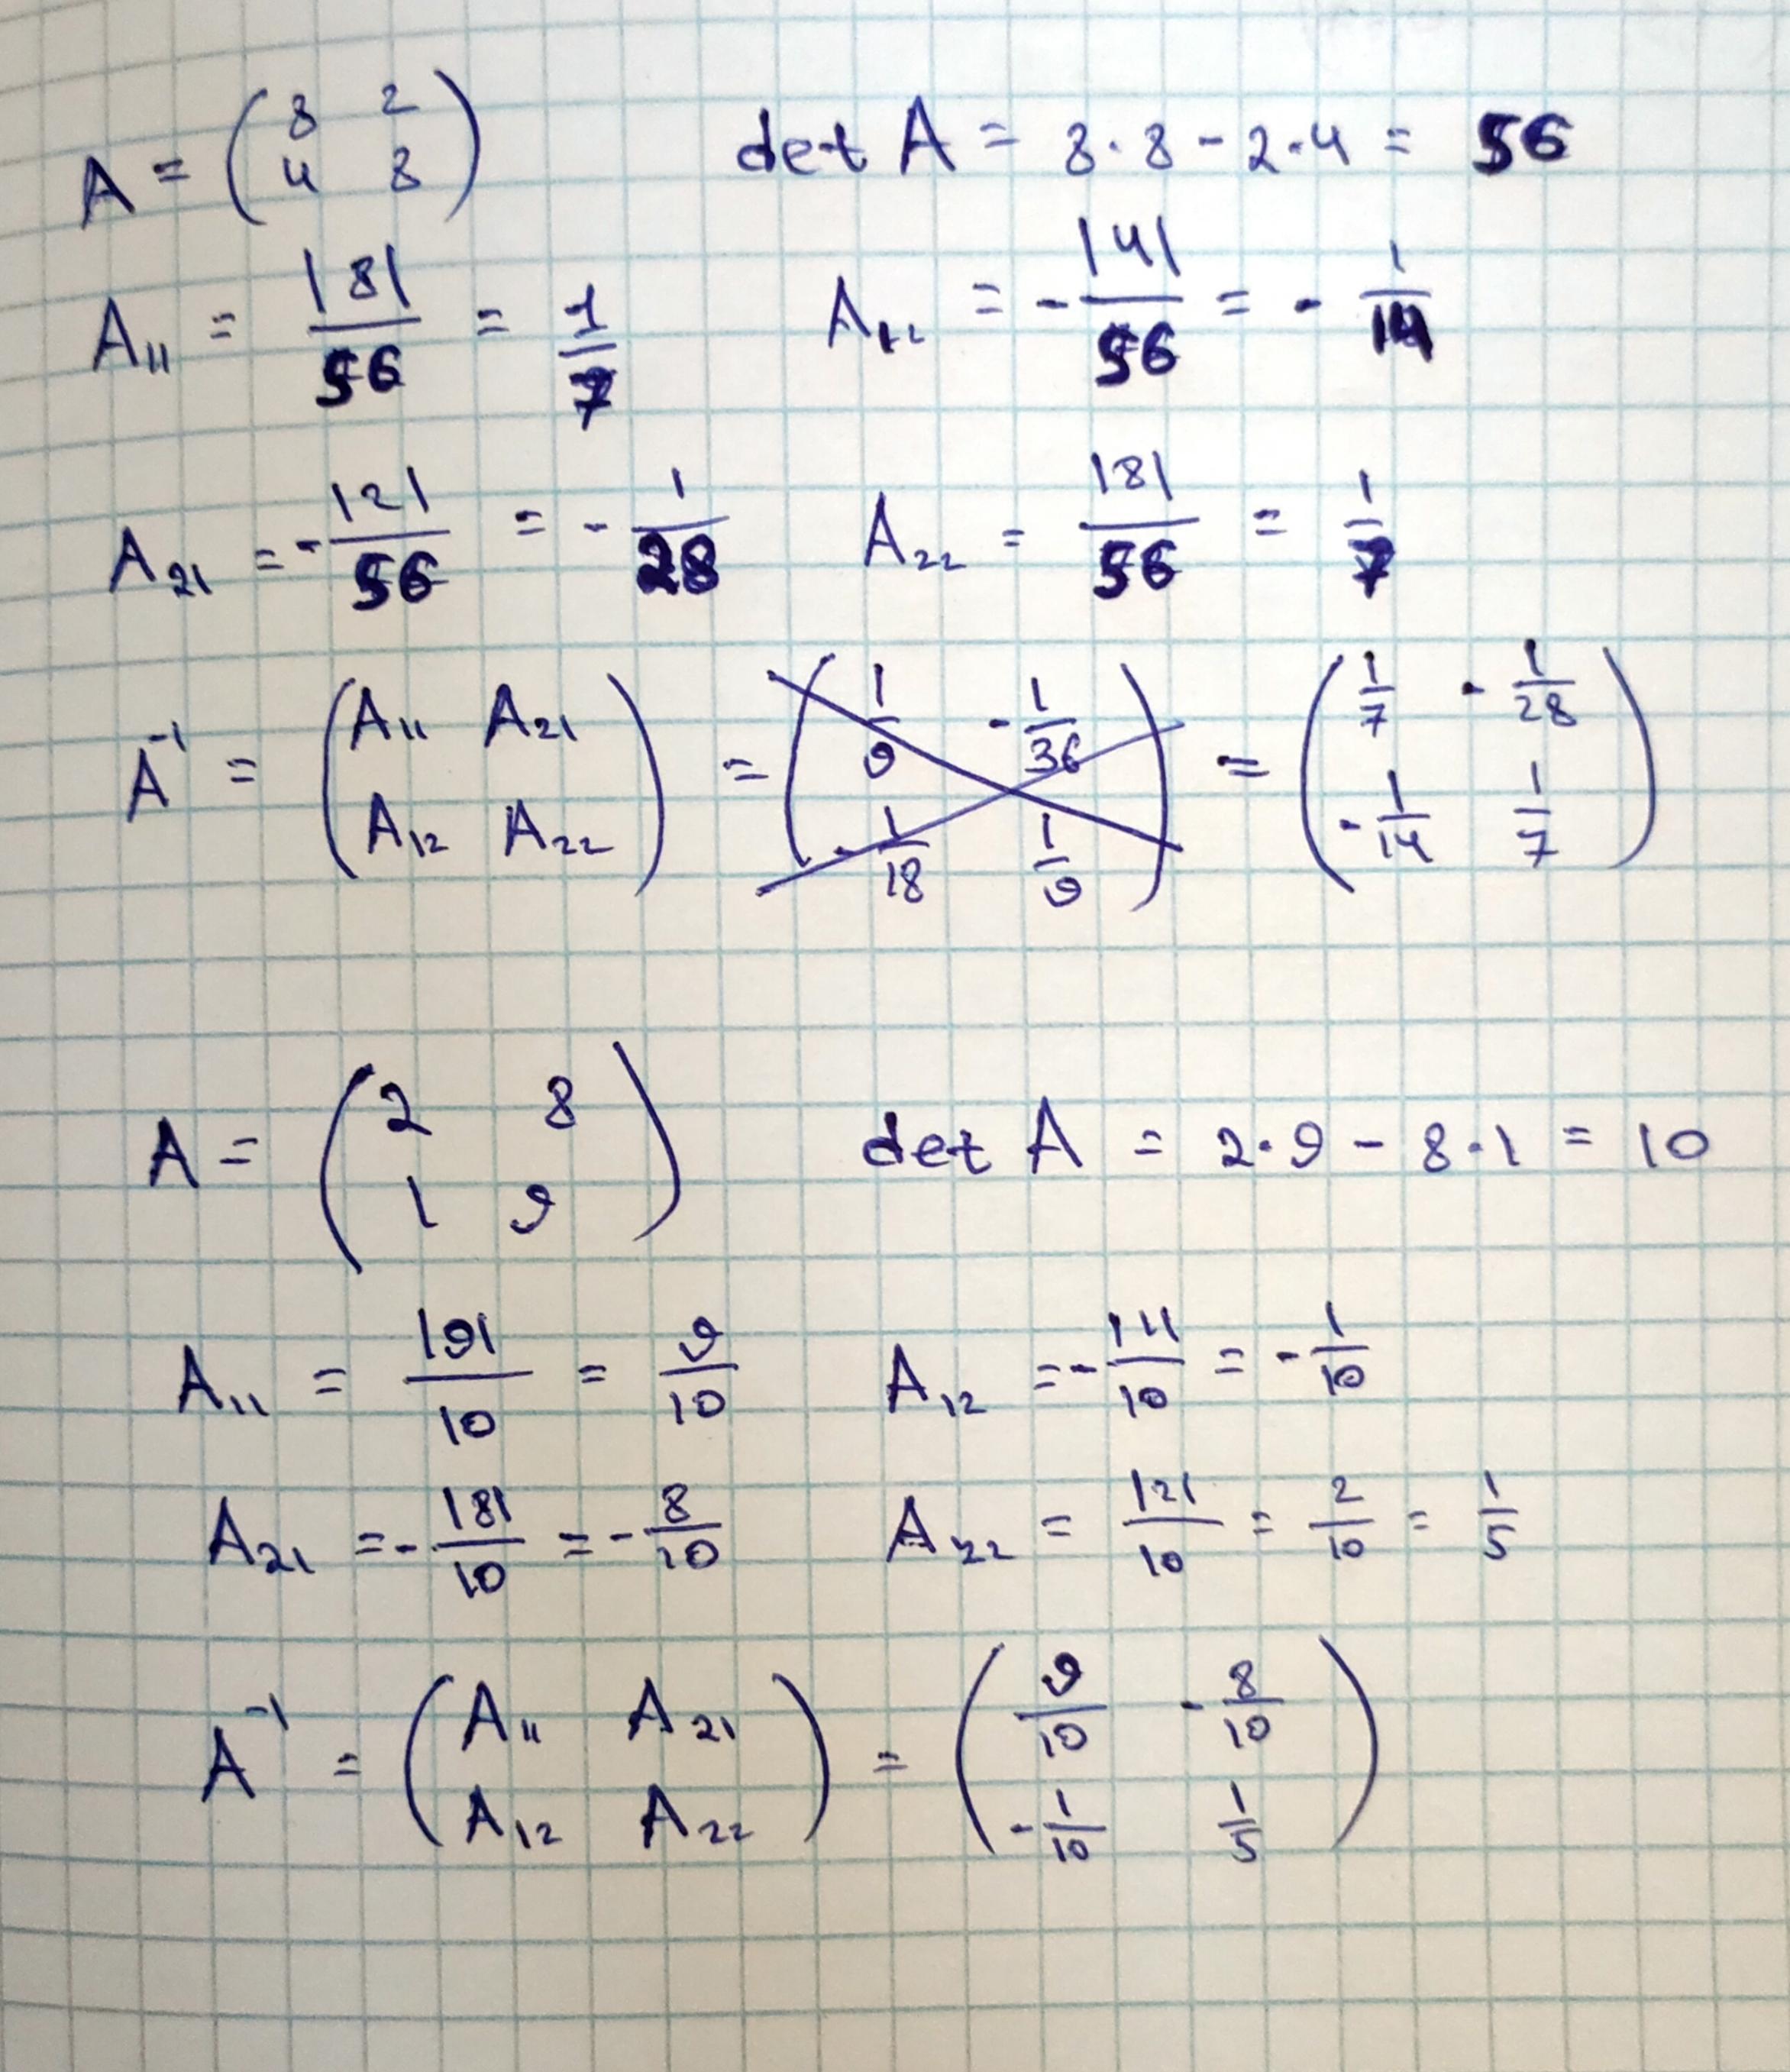 A = ( 8 2 ; 4 8 )    det A = 8·8 - 2·4 = 56
A₁₁ = |8|/56 = 1/7    A₁₂ = - |4|/56 = - 1/14
A₂₁ = - |2|/56 = - 1/28    A₂₂ = |8|/56 = 1/7
A⁻¹ = ( A₁₁ A₂₁ ; A₁₂ A₂₂ ) = ( 1/9 -1/36 ; -1/18 1/9 ) = ( 1/7 -1/28 ; -1/14 1/7 )
A = ( 2 8 ; 1 9 )    det A = 2·9 - 8·1 = 10
A₁₁ = |9|/10 = 9/10    A₁₂ = - |1|/10 = - 1/10
A₂₁ = - |8|/10 = - 8/10    A₂₂ = |2|/10 = 2/10 = 1/5
A⁻¹ = ( A₁₁ A₂₁ ; A₁₂ A₂₂ ) = ( 9/10 -8/10 ; -1/10 1/5 )